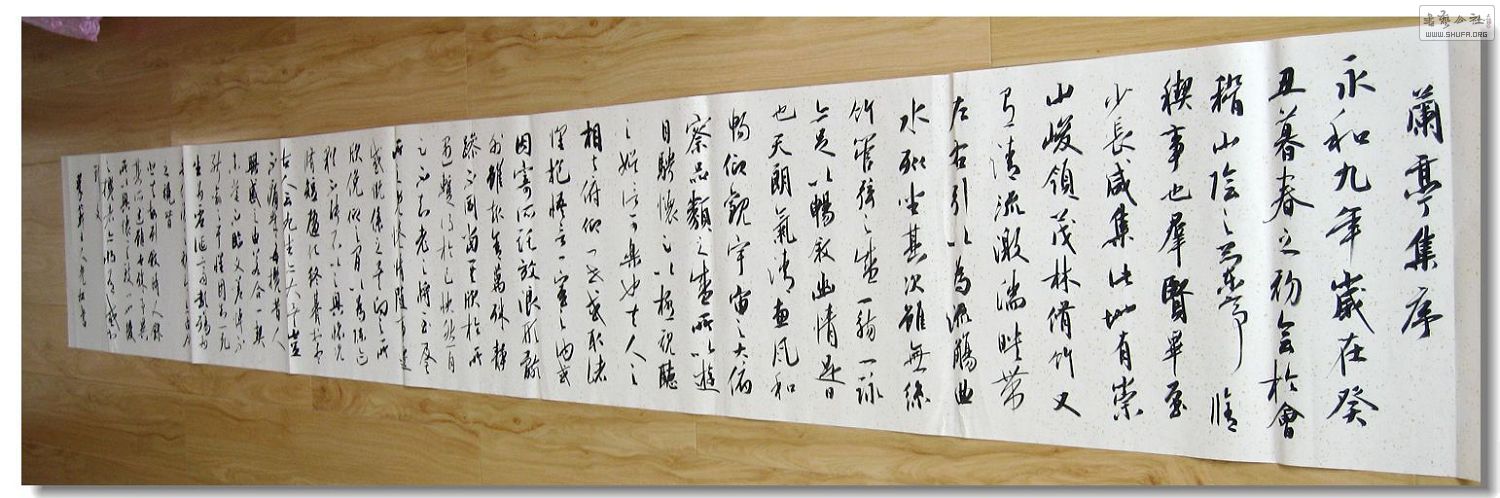 蘭亭集序
永和九年歲在癸
丑暮春之初會於會
稽山陰之蘭亭脩
稧事也羣賢畢至
少長咸集此地有崇
山峻領茂林脩竹又
有清流激湍映帶
左右引以為流觴曲
水列坐其次雖無絲
竹管弦之盛一觴一詠
亦足以暢敘幽情是日
也天朗氣清惠風和
暢仰觀宇宙之大俯
察品類之盛所以遊
目騁懷足以極視聽
之娛信可樂也夫人之
相與俯仰一世或取諸
懷抱悟言一室之內或
因寄所託放浪形骸
之外雖趣舍萬殊靜
躁不同當其欣於所
遇暫得於己快然自
足不知老之將至及
其所之既倦情隨事遷
感慨係之矣向之所
欣俛仰之間以為陳迹
猶不能不以之興懷況
脩短隨化終期於盡
古人云死生亦大矣豈
不痛哉每攬昔人
興感之由若合一契
未嘗不臨文嗟悼不
能喻之於懷固知一死
生為虛誕齊彭殤為
之視昔
悲夫故列敘時人錄
其所述雖世殊事異
所以興懷其致一也後
之攬者亦將有感於
斯文
書藝公社
WWW.SHUFA.ORG